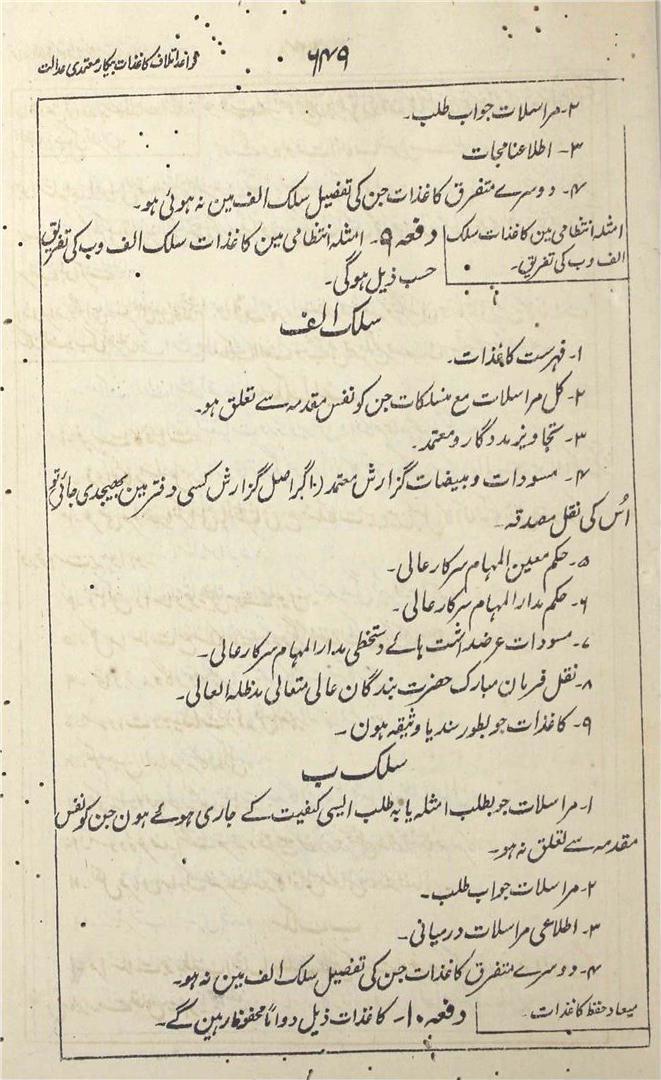 ۶۴۹
قواعد اتلاف کاغذات بیکار معتمدی عدالت
۲۔ مراسلات جواب طلب۔
۳۔ اطلاعنامجات
۴۔ دوسرے متفرق کاغذات جن کی تفصیل سلک الف مین نہ ہوئی ہو۔
امثلہ انتظامی مین کاغذات سلک
الف وب کی تفریق۔
دفعہ ۹۔ امثلہ انتظامی مین کاغذات سلک الف وب کی تفریق
حسب ذیل ہوگی۔
سلک الف
۱۔ فہرست کاغذات۔
۲۔ کل مراسلات مع منسلکات جن کو نفس مقدمہ سے تعلق ہو۔
۳۔ تجاویز مددگار و معتمد۔
۴۔ مسودات و مبیضات گزارش معتمد (۔) اگر اصل گزارش کسی دفتر مین بھیجدی جائی تو
اُس کی نقل مصدقہ۔
۵۔ حکم معین المہام سرکار عالی۔
۶۔ حکم مدار المہام سرکار عالی۔
۷۔ مسودات عرضداشت ہائے دستخطی مدار المہام سرکار عالی۔
۸۔ نقل فرمان مبارک حضرت بندگان عالی متعالی مدظلہ العالی۔
۹۔ کاغذات جو بطور سند یا وثیقہ ہون۔
سلک ب
۱۔ مراسلات جو بطلب امثلہ یا بہ طلب ایسی کیفیت کے جاری ہوئے ہون جن کو نفس
مقدمہ سے تعلق نہ ہو۔
۲۔ مراسلات جواب طلب۔
۳۔ اطلاعی مراسلات درمیانی۔
۴۔ دوسرے متفرق کاغذات جن کی تفصیل سلک الف مین نہ ہو۔
میعاد حفظ کاغذات۔
دفعہ ۱۰۔ کاغذات ذیل دواماً محفوظ رہین گے۔